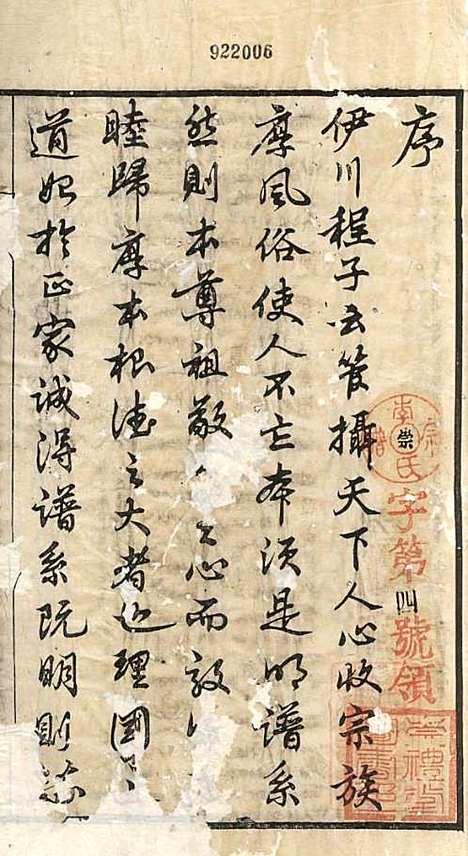 922006
序
伊川程子云管攝天下人心收宗族
厚風俗使人不忘本須是明譜系
然則本尊祖敬之心而敦
睦歸厚本根德之大者也理國之
道始於正家誠得譜系既明則
李氏宗譜
崇
字第四號領